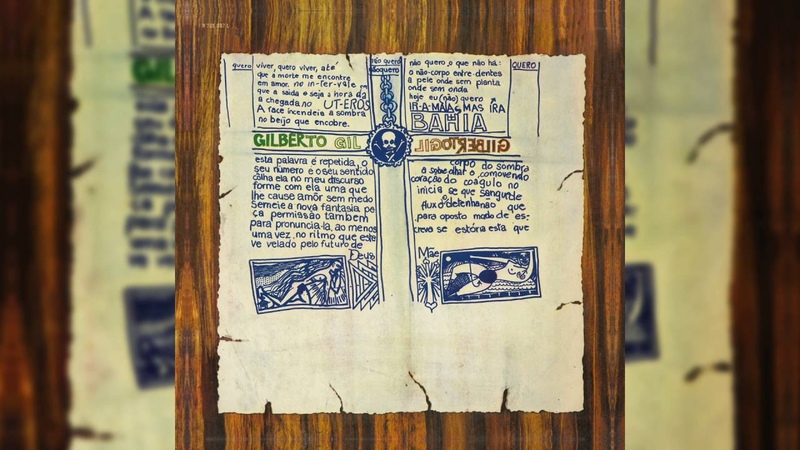 R 765.087 L
quero
viver, quero viver, até
que a morte me encontre
em amor. no in-ter-va-le
que a saida e seja a hora da
a chegada no UT-EROS
A face incendeia a sombra
no beijo que encobre.
não quero
nãoquero
não quero o que não há:
o não-corpo entre-dentes
a pele onde sem planta
onde sem onda
hoje eu(não) quero
IR-A-MAIS MAS IRA
BAHIA
QUERO
GILBERTO GIL
GILBERTO GIL
esta palavra é repetida, o
seu número e o seu sentido
olha ela no meu discurso
forme com ela uma que
lhe cause amor sem medo
Semeie a nova fantasia pe
ça permissão também
para pronuncia-la, ao menos
uma vez, no ritmo que este
ve velado pelo futuro de
Deus
corpo do sombra
a sobe olhar o, comovendo
coração do coagulo no
inicia se que sangurde
fluxo detenhanão que
para oposto modo de es:
crevo se estória esta que
Mãe